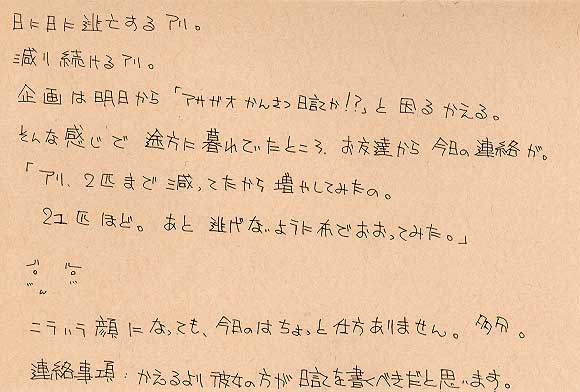 日に日に逃亡するアリ。
減り続けるアリ。
企画は明日から「アサガオかんさつ日記か!?」と困るかえる。
そんな感じで途方に暮れていたところ、お友達から今日の連絡が。
「アリ、2匹まで減ってたから増やしてみたの。
21匹ほど。あと逃げないように布でおおってみた。」
こういう顔になっても、今日のはちょっと仕方ありません。多分。
連絡事項：かえるより彼女の方が日記を書くべきだと思います。